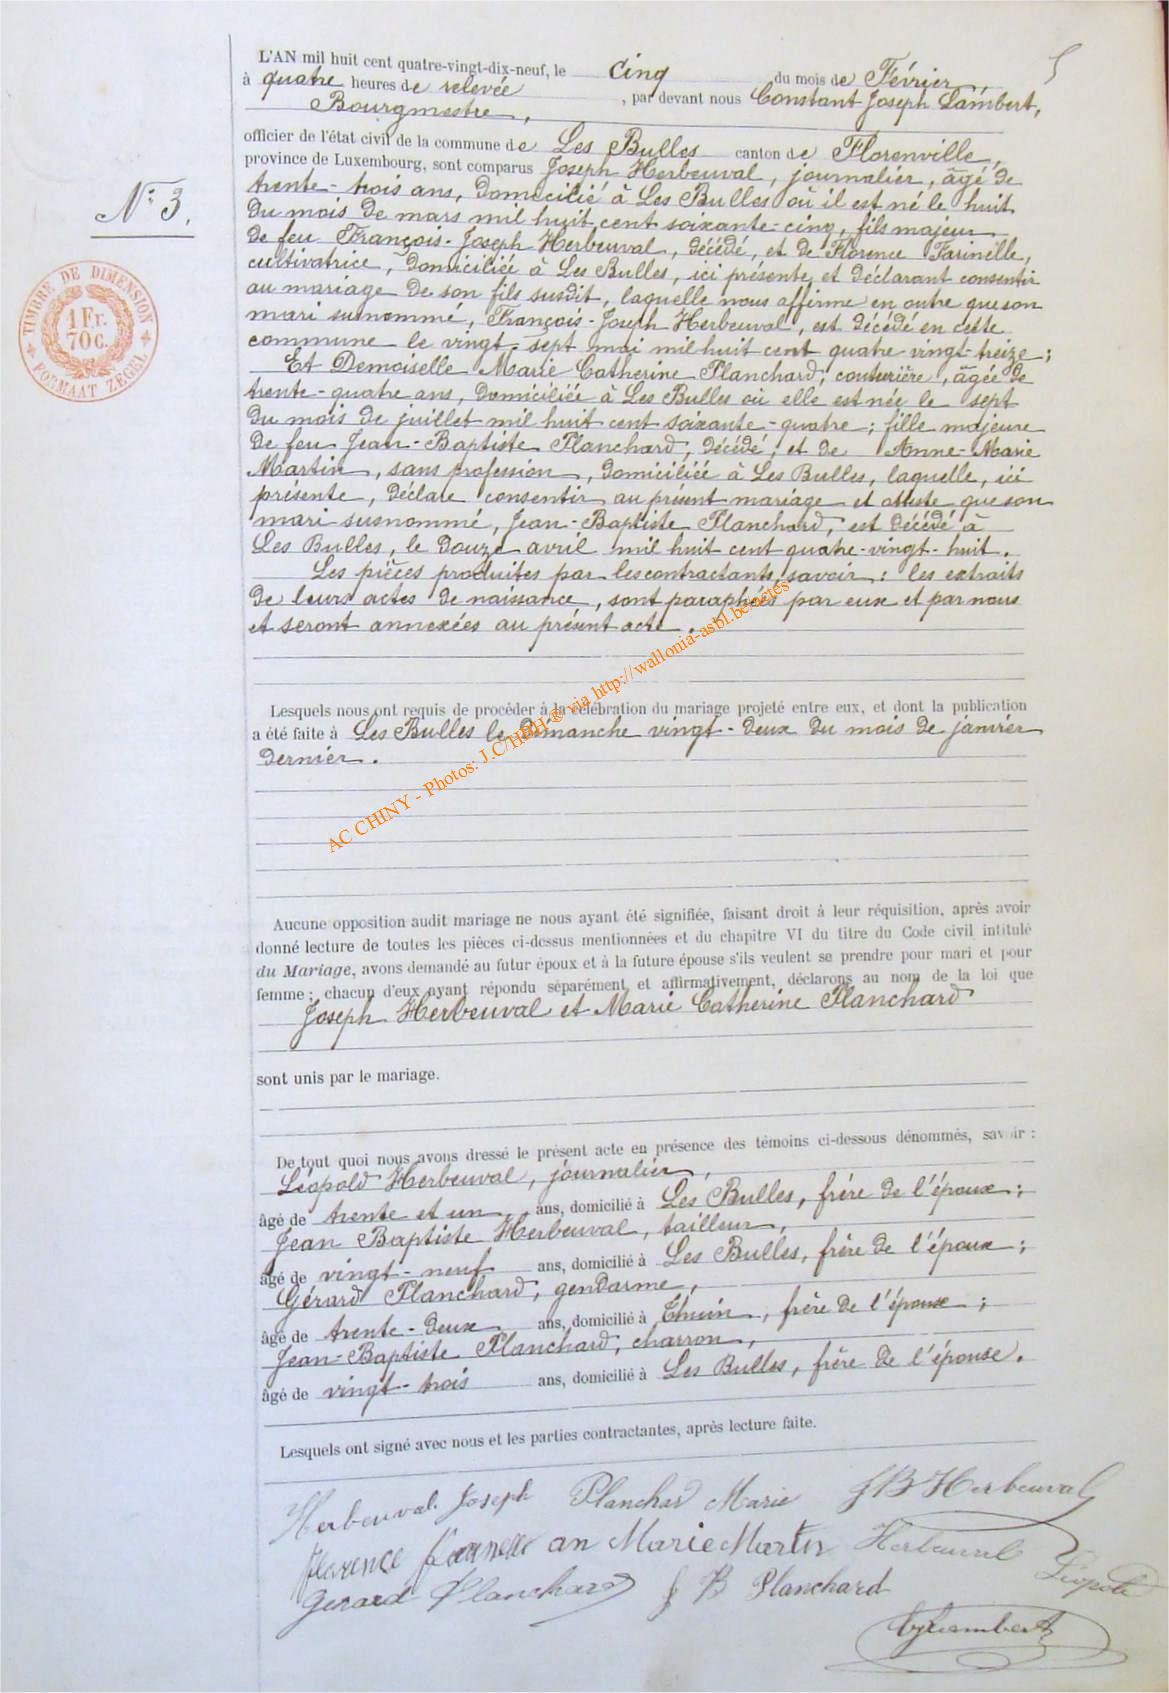 5
L'AN mil huit cent quatre-vingt-dix-neuf, le Cinq du mois de Février
à quatre heures de relevée, par devant nous Constant Joseph Lambert,
Bourgmestre,
officier de l'état civil de la commune de Les Bulles canton de Florenville,
province de Luxembourg, sont comparus Joseph Herbeuval, journalier, âgé de
trente-trois ans, domicilié à Les Bulles où il est né le huit
du mois de mars mil huit cent soixante-cinq, fils majeur
de feu François-Joseph Herbeuval, décédé, et de Florence Farinelle,
cultivatrice, domiciliée à Les Bulles, ici présente et déclarant consentir
au mariage de son fils susdit, laquelle nous affirme en outre que son
mari susnommé, François-Joseph Herbeuval, est décédé en cette
commune le vingt-sept mai mil huit cent quatre vingt-treize;
Et Demoiselle Marie Catherine Planchard, couturière, âgée de
trente-quatre ans, domiciliée à Les Bulles où elle est née le sept
du mois de juillet mil huit cent soixante-quatre; fille majeure
de feu Jean-Baptiste Planchard, décédé, et de Anne-Marie
Martin, sans profession, domiciliée à Les Bulles, laquelle, ici
présente, déclare consentir au présent mariage et atteste que son
mari susnommé, Jean-Baptiste Planchard, est décédé à
Les Bulles, le douze avril mil huit cent quatre-vingt-huit.
Les pièces produites par les contractants, savoir: les extraits
de leurs actes de naissance, sont paraphées par eux et par nous
et seront annexées au présent acte.
N° 3.
TIMBRE DE DIMENSION
1 Fr.
70 c.
FORMAAT ZEGEL
Lesquels nous ont requis de procéder à la célébration du mariage projeté entre eux, et dont la publication
a été faite à Les Bulles le Dimanche vingt-deux du mois de janvier
dernier.
AC CHINY - Photos: J.C/HBH ® via http://wallonia-asbl.be/actes
Aucune opposition audit mariage ne nous ayant été signifiée, faisant droit à leur réquisition, après avoir
donné lecture de toutes les pièces ci-dessus mentionnées et du chapitre VI du titre du Code civil intitulé
du Mariage, avons demandé au futur époux et à la future épouse s'ils veulent se prendre pour mari et pour
femme; chacun d'eux ayant répondu séparément et affirmativement, déclarons au nom de la loi que
Joseph Herbeuval et Marie Catherine Planchard
sont unis par le mariage.
De tout quoi nous avons dressé le présent acte en présence des témoins ci-dessous dénommés, savoir :
Léopold Herbeuval, journalier,
âgé de trente et un ans, domicilié à Les Bulles, frère de l'époux;
Jean Baptiste Herbeuval, tailleur,
âgé de vingt-neuf ans, domicilié à Les Bulles, frère de l'époux;
Gérard Planchard, gendarme,
âgé de trente-deux ans, domicilié à Thuin, frère de l'épouse;
Jean-Baptiste Planchard, charron,
âgé de vingt-trois ans, domicilié à Les Bulles, frère de l'épouse.
Lesquels ont signé avec nous et les parties contractantes, après lecture faite.
Herbeuval Joseph Planchard Marie JB Herbeuval
Florence an Marie Martin Herbeuval Léopold
Gérard Planchard J B Planchard
CJLambert